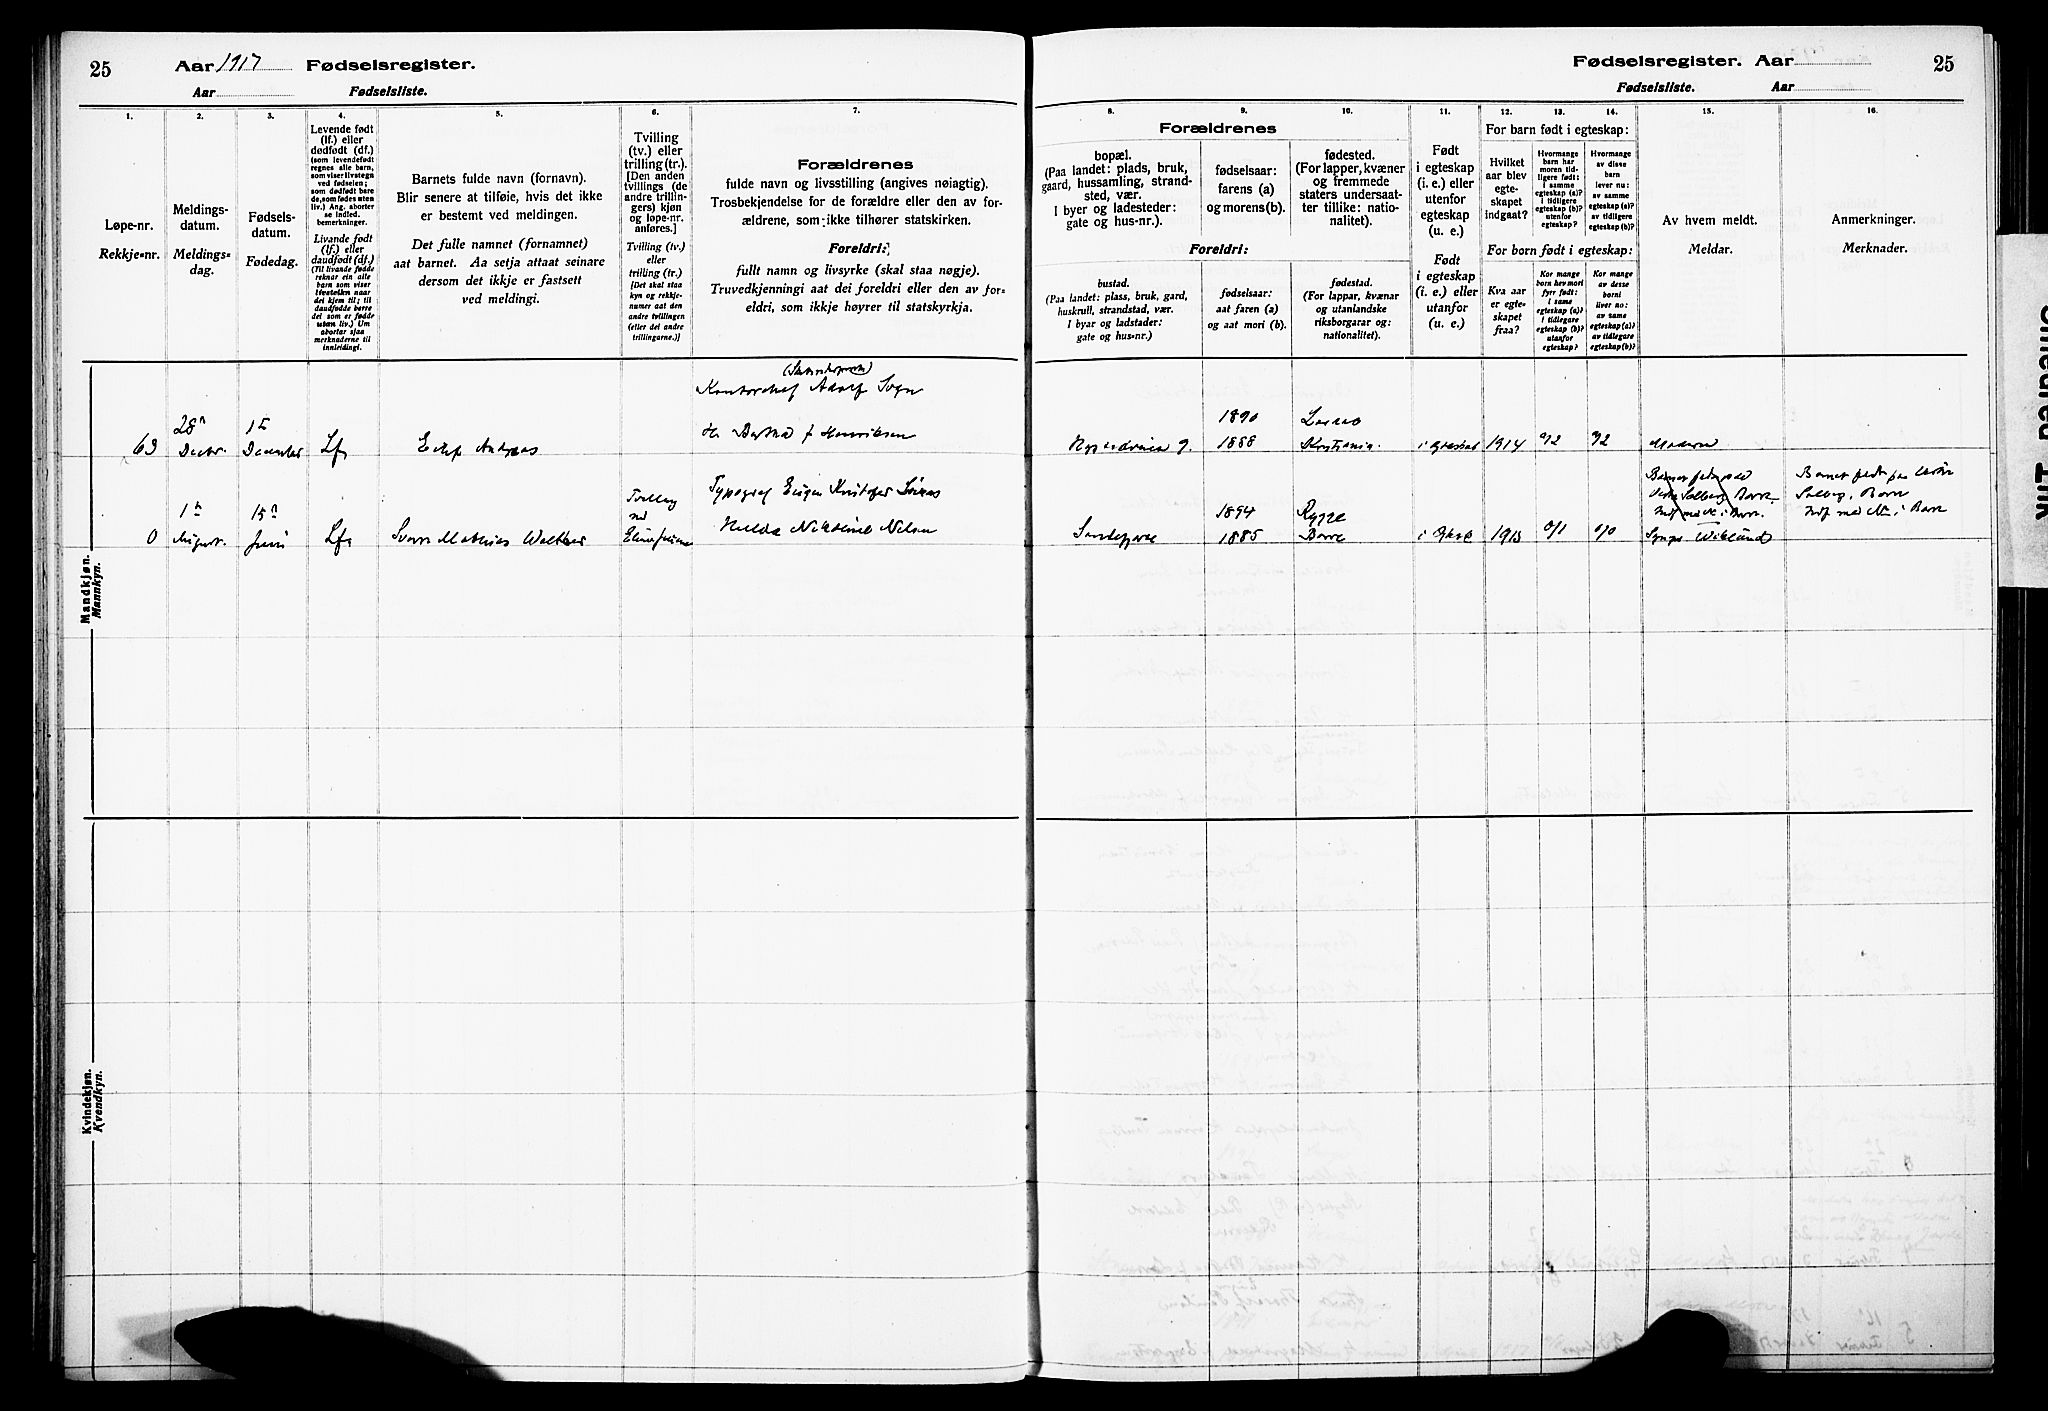 25
Aar 1917 Fødselsregister.
Aar Fødselsliste.
Fødselsregister. Aar
25
Fødselsliste. Aar
1.
Løpe-nr.
Rekkje-nr.
2.
Meldings-
datum.
Meldings-
dag.
3.
Fødsels-
datum.
Fødedag.
4.
Levende født
(lf.) eller
dødfødt (df.)
(som levendefødt
regnes alle barn,
som viser livstegn
ved fødselen;
som dødfødt bare
de, som fødes uten
liv.) Ang. aborter
se indled.
bemerkninger.
Livande født
(lf.) eller
daudfødt (df.)
(Til livande fødde
reknar ein alle
barn som viser
livsteikn naar
dei kjem til; til
daudfødde berre
dei som er fødde
utan liv.) Um
abortar sjaa
merknaderne til
innleidingi.
5.
Barnets fulde navn (fornavn).
Blir senere at tilføie, hvis det ikke
er bestemt ved meldingen.
Det fulle namnet (fornamnet)
aat barnet. Aa setja attaat seinare
dersom det ikkje er fastsett
ved meldingi.
6.
Tvilling
(tv.) eller
trilling (tr.).
[Den anden
tvillings (de
andre trillin-
gers) kjøn
og løpe-nr.
anføres.]
Tvilling (tv.)
eller
trilling (tr.)
[Det skal staa
kyn og rekkje-
numer aat den
andre tvillingen
(eller dei andre
trillingarne.)]
7.
Forældrenes
fulde navn og livsstilling (angives nøiagtig).
Trosbekjendelse for de forældre eller den av for-
ældrene, som ikke tilhører statskirken.
Foreldri:
fullt namn og livsyrke (skal staa nøgje).
Truvedkjenningi aat dei foreldri eller den av for-
eldri, som ikkje høyrer til statskyrkja.
Forældrenes
8.
bopæl.
(Paa landet: plads, bruk,
gaard, hussamling, strand-
sted, vær.
I byer og ladesteder:
gate og hus-nr.).
9.
fødselsaar:
farens (a)
og morens (b).
10.
fødested.
(For lapper, kvæner
og fremmede
staters undersaat-
ter tillike: natio-
nalitet).
Foreldri:
bustad.
(Paa landet: plass, bruk, gard,
huskrull, strandstad, vær.
I byar og ladstader:
gate og hus-nr.)
fødselsaar:
aat faren (a)
og aat mori (b).
fødestad.
(For lappar, kvænar
og utanlandske
riksborgarar og:
nationalitet).
11.
Født
i egteskap
(i. e.) eller
utenfor
egteskap
(u. e.)
Født
i egteskap
(i. e.) eller
utanfor
(u. e.)
12. 13. 14.
For barn født i egteskap:
Hvilket
aar blev
egte-
skapet
indgaat?
Hvormange
barn har
moren tid-
ligere født:
i samme
egteskap (a)?
i tidligere
egteskap (b)?
utenfor
egteskap?
Hvormange
av disse
barn
lever nu:
av samme
egteskap (a)?
av tidligere
egteskap (b)?
For born født i egteskap:
Kva aar
er egte-
skapet
fraa?
Kor mange
born hev mori
fyrr født:
i same
egteskap (a)?
i tidlegare
egteskap (b)?
utanfor
egteskap?
Kor mange
av desse
borni
liver no:
av same
egteskap (a)?
av tidlegare
egteskap (b)?
15.
Av hvem meldt.
Meldar.
16.
Anmerkninger.
Merknader.
Mandkjøn.
Mannkyn.
Adolf Sogn
1890
63 28 Decbr. 1 December Lf. Andreas Henriksen
1888 Kristiania. i Egteskab 1914 Moderen
Typograf Eugen Kristofer
1894 Rygge
0 1 August. 15 Juni Lf. Mathias Walther
Nilsen
1885 Borre i Egtesk. 1913 0/1 Wiklund
Barnet født paa
Solberg, Borre
Kvindekjøn.
Kvendkyn.